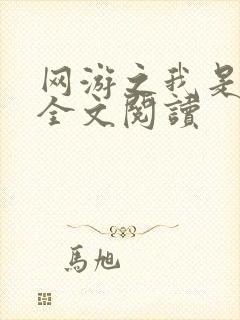 网游之我是
全文閱讀
馬旭